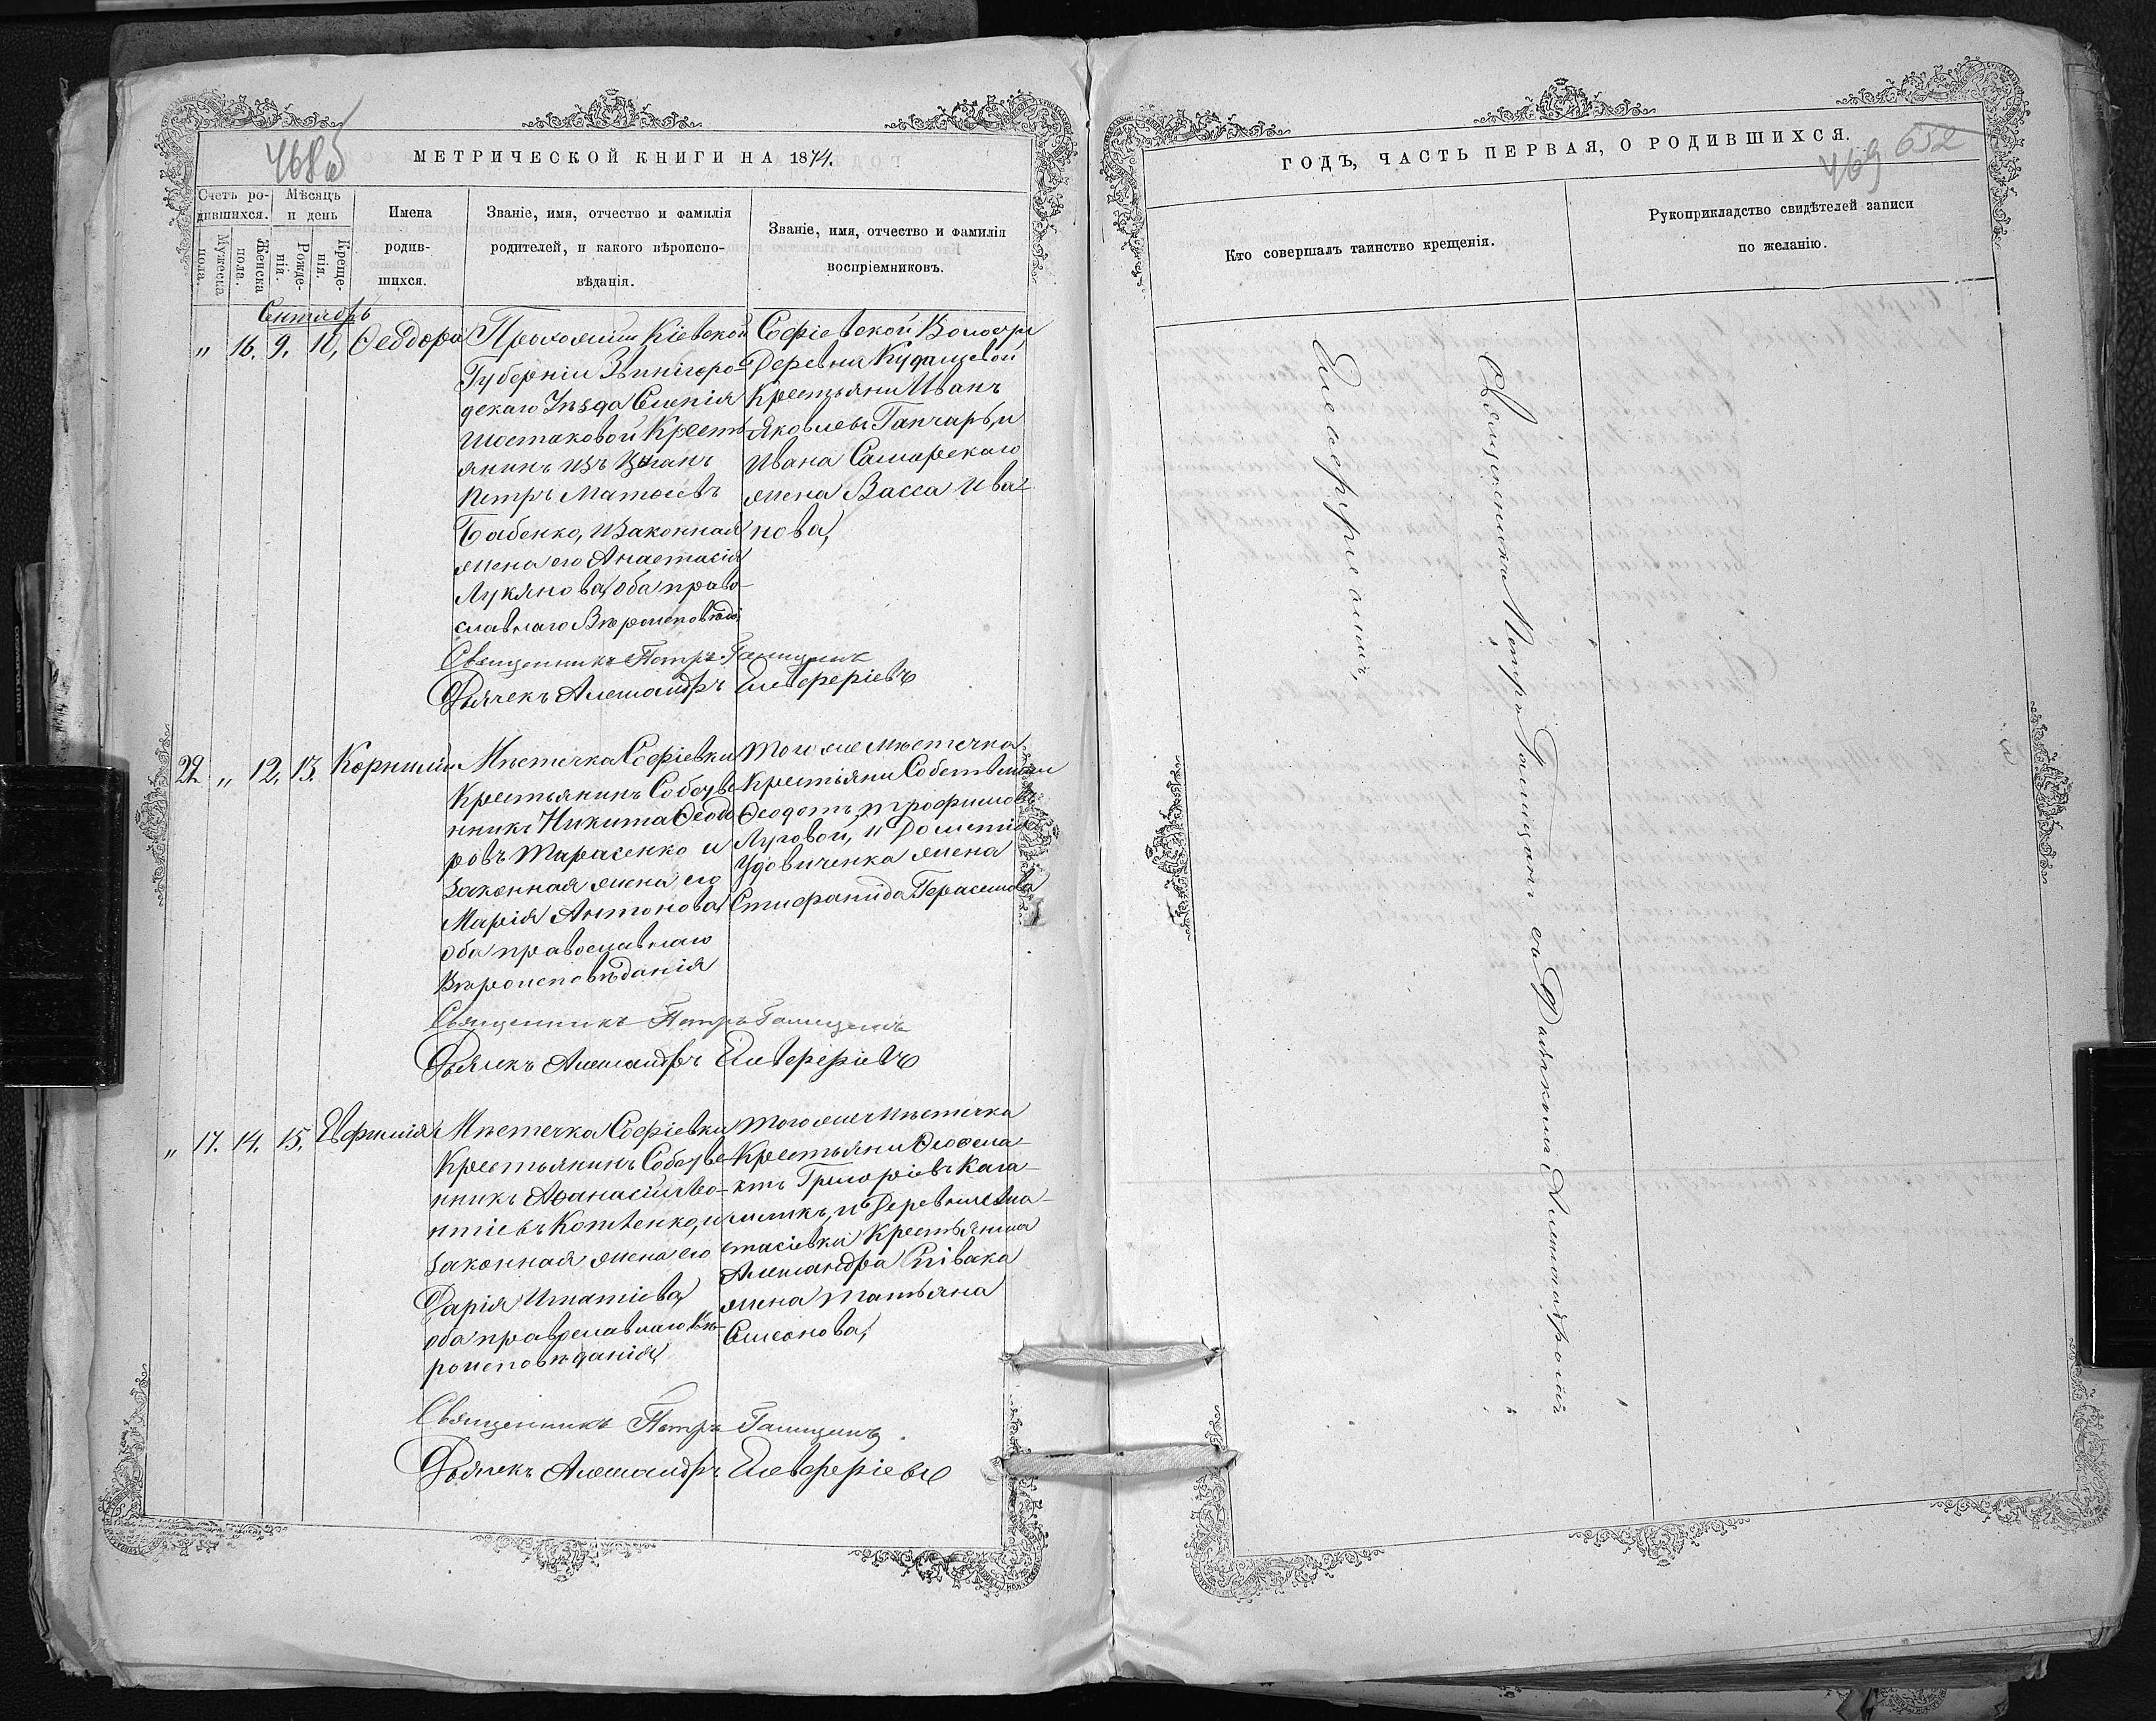 468б
МЕТРИЧЕСКОЙ КНИГИ НА 1874.
Счетъ ро-
дившихся.
Мужеска
пола.
Женска
пола.
Мѣсяцъ
и день
Рожде-
нія.
Креще-
нія.
Имена
родив-
шихся.
Званіе, имя, отчество и фамилія
родителей, и какого вѣроиспо-
вѣданія.
Званіе, имя, отчество и фамилія
воспріемниковъ.
Сентябрь
„ 16. 9. 10, Ѳеодора
Кіевской
Губерніи Звинигоро-
дскаго Уѣзда
Шостаковой Кресть-
янинъ изъ Цыганъ
Петръ Матѳіевъ
Бабенко, и Законная
жена его Анастасія
Лукянова, оба право-
славнаго Вѣроисповѣд.
Софіевской Волости
Деревни Кудашевой
Крестьяни Иванъ
Яковлевъ Ганчаръ, и
Ивана Самарскаго
жена Васса Ива-
нова,
Священникъ Петръ Галицынъ
Дьячекъ Александръ Елевферіевъ
22. „ 12. 13. Корнилій
Мѣстечка Софіевки
Крестьянинъ Собстве-
нникъ Никита Ѳеодо-
ровъ Тарасенко и
Законная жена его
Марія Антонова,
оба православнаго
Вѣроисповѣданія
Того же мѣстечка
Крестіяни Собственики
Ѳеодотъ Трофимовъ
Луговой, и
Удовиченка жена
Стифанида Герасимова
Священникъ Петръ Галицынъ
Дьячекъ Александръ Елевферіевъ
„ 17. 14. 15. Евфимія
Мѣстечка Софіевки
Крестьянинъ Собстве-
нникъ Аѳанасій Лео-
нтіевъ Котенко, и
Законная жена его
Дарія Игнатіева,
оба православнаго Вѣ-
роисповѣданія,
Того же Мѣстечка
Крестьяни Ѳеофила-
ктъ Григоріевъ Кала-
шникъ, и Деревни Ана-
стасіевки Крестьянина
Александра Співака
жена Татьяна
Симонова,
Священникъ Петръ Галицынъ.
Дьячекъ Александръ Елевферіевъ
ГОДЪ, ЧАСТЬ ПЕРВАЯ, О РОДИВШИХСЯ.
469 652
Кто совершалъ таинство крещенія.
Рукоприкладство свидѣтелей записи
по желанію.
Священникъ Петръ Галицынъ съ Дьячкомъ Александромъ
Елевферіевымъ,